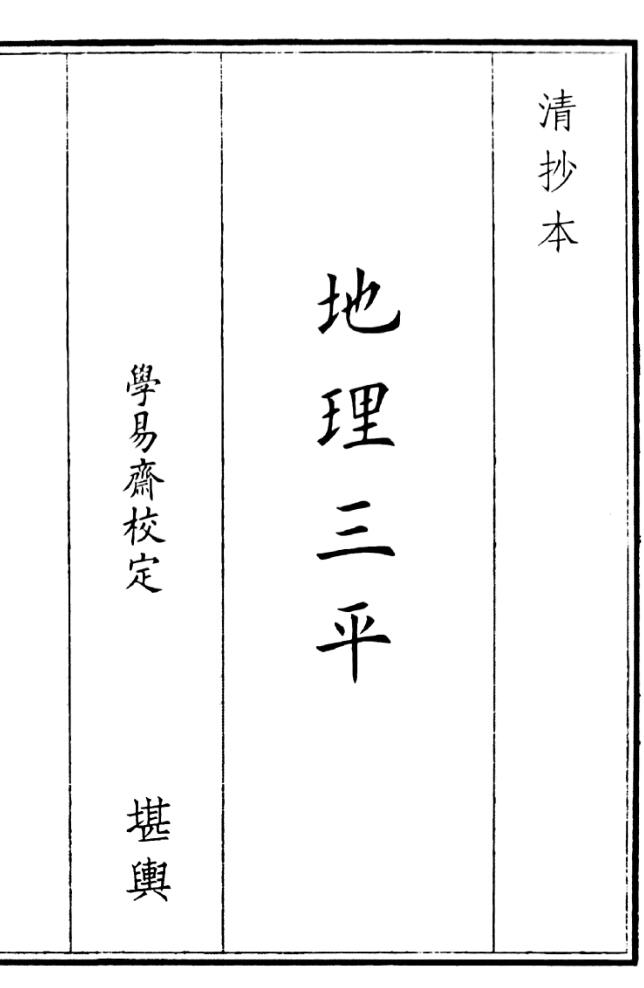 清抄本
地理三平
學易齋校定
堪輿